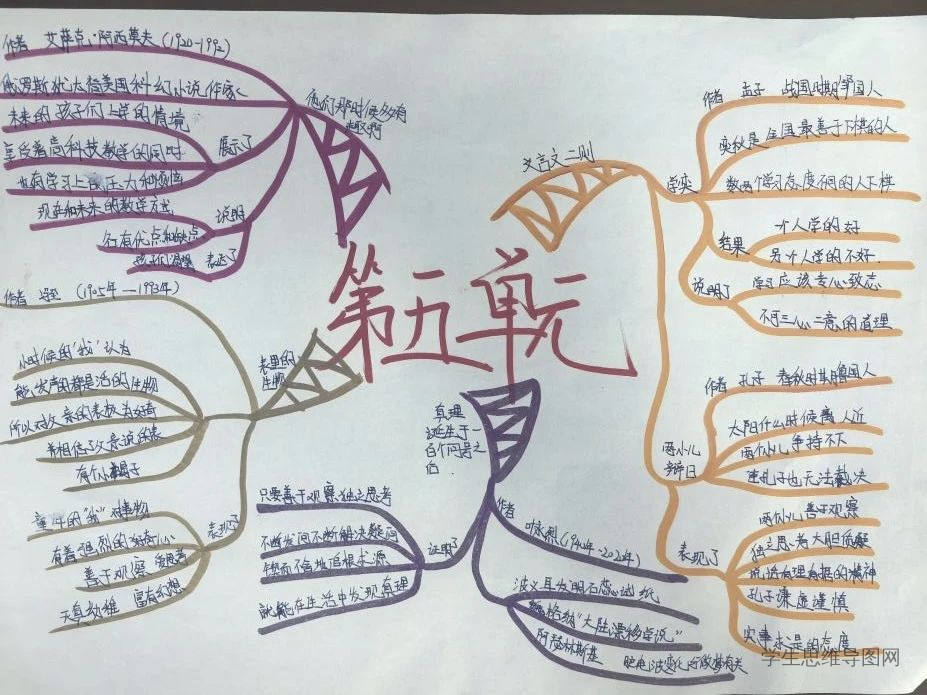 第五单元
他们那时候多有
趣啊
作者 艾萨克·阿西莫夫(1920-1992)
俄罗斯犹太裔美国科幻小说作家
展示了
未来的孩子们上学的情境
享受着高科技教学的同时
也有学习上的压力和烦恼
说明
现在和未来的教学方式
各有优点和缺点
表达了
孩子们渴望
表里的
生物
作者 (1905年—1993年)
小时候的"我"认为
能发声的都是活的生物
所以对父亲的表极为好奇
并相信了父亲说的表
有个小蝎子
表现了
童年的"我"对事物
有着强烈的好奇心
善于观察 爱思考
天真幼稚 富有幻想
真理
诞生于一
百个问号之
后
作者
叶永烈(1940年-2020年)
波义耳发明石蕊试纸
魏格纳"大陆漂移学说"
阿瑟林斯基
脑电波变化与做梦有关
证明了
只要善于观察独立思考
不断发问不断解决疑问
锲而不舍地追根求源
就能在生活中发现真理
文言文二则
学弈
作者 孟子 战国时期邹国人
奕秋是全国最善于下棋的人
教两个学习态度不同的人下棋
结果
一个人学的好
另一个人学的不好
说明了
学习应该专心致志
不可三心二意的道理
两小儿
辩日
作者 孔子 春秋时期鲁国人
太阳什么时候离人近
两个小儿争持不下
连孔子也无法裁决
表现了
两小儿善于观察
独立思考大胆质疑
说话有理有据的精神
孔子谦虚谨慎
实事求是的态度
学生思维导图网